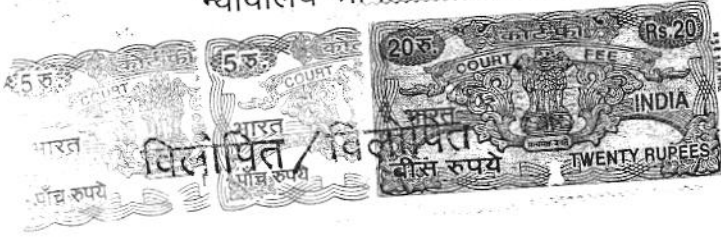 न्यायालय
5 रु. कोर्ट फी
COURT
भारत
पाँच रुपये
5 रु. कोर्ट
COURT
भारत
पाँच रुपये
20 रु. कोर्ट फी Rs.20
COURT FEE
भारत INDIA
सत्यमेव जयते
बीस रुपये TWENTY RUPEES
विलोपित / विलोपित